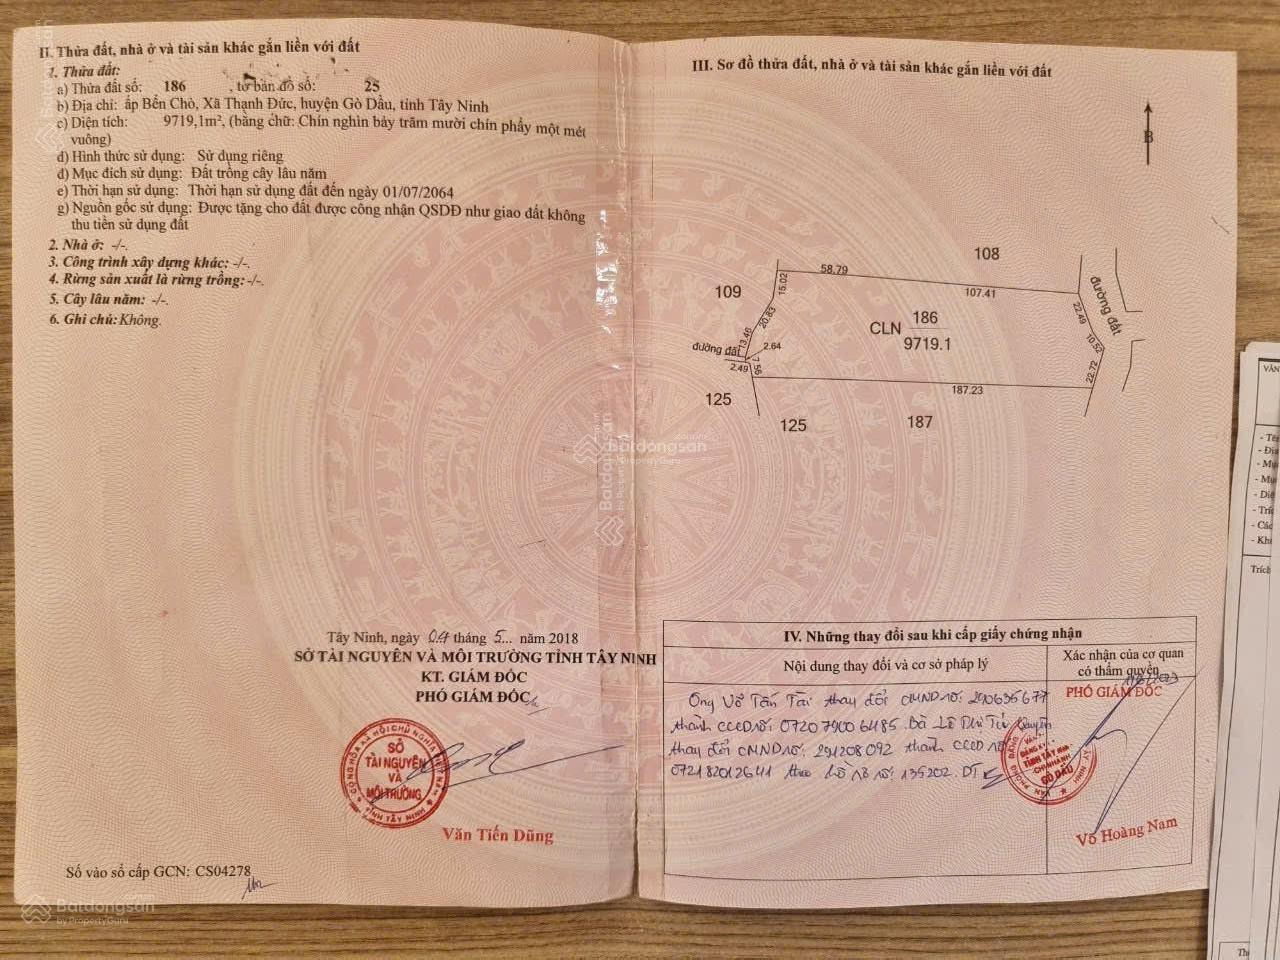 II. Thửa đất, nhà ở và tài sản khác gắn liền với đất
1. Thửa đất:
a) Thửa đất số: 186 , tờ bản đồ số: 25
b) Địa chỉ: ấp Bến Chò, Xã Thạnh Đức, huyện Gò Dầu, tỉnh Tây Ninh
c) Diện tích: 9719,1m², (bằng chữ: Chín nghìn bảy trăm mười chín phẩy một mét
vuông)
d) Hình thức sử dụng: Sử dụng riêng
đ) Mục đích sử dụng: Đất trồng cây lâu năm
e) Thời hạn sử dụng: Thời hạn sử dụng đất đến ngày 01/07/2064
g) Nguồn gốc sử dụng: Được tặng cho đất được công nhận QSDĐ như giao đất không
thu tiền sử dụng đất
2. Nhà ở: -/-.
3. Công trình xây dựng khác: -/-.
4. Rừng sản xuất là rừng trồng: -/-.
5. Cây lâu năm: -/-.
6. Ghi chú: Không.
Tây Ninh, ngày 04 tháng 5 năm 2018
SỞ TÀI NGUYÊN VÀ MÔI TRƯỜNG TỈNH TÂY NINH
KT. GIÁM ĐỐC
PHÓ GIÁM ĐỐC
CỘNG HÒA XÃ HỘI CHỦ NGHĨA VIỆT NAM
SỞ
TÀI NGUYÊN
VÀ
MÔI TRƯỜNG
TỈNH TÂY NINH
Văn Tiến Dũng
Số vào sổ cấp GCN: CS04278
III. Sơ đồ thửa đất, nhà ở và tài sản khác gắn liền với đất
B
108
109
58.79
107.41
15.02
20.83
13.46
2.64
2.49
7.56
22.49
10.52
22.72
187.23
CLN
186
9719.1
đường đất
đường đất
125
125
187
IV. Những thay đổi sau khi cấp giấy chứng nhận
Nội dung thay đổi và cơ sở pháp lý
Xác nhận của cơ quan
có thẩm quyền
Ông Võ Tấn Tài thay đổi CMND số: 290635677
thành CCCD số: 072079006485. Bà Lê Thị Tú Quyên
thay đổi CMND số: 291208092 thành CCCD số
072182012641 theo hồ sơ số: 135202. DT
PHÓ GIÁM ĐỐC
TỈNH TÂY NINH
CHI NHÁNH
GÒ DẦU
Võ Hoàng Nam
Batdongsan
by PropertyGuru
Batdongsan
by PropertyGuru
Batdongsan
by PropertyGuru
VĂN
- Tên
- Địa
- Mục
- Diệ
- Trí
- Các
Trích